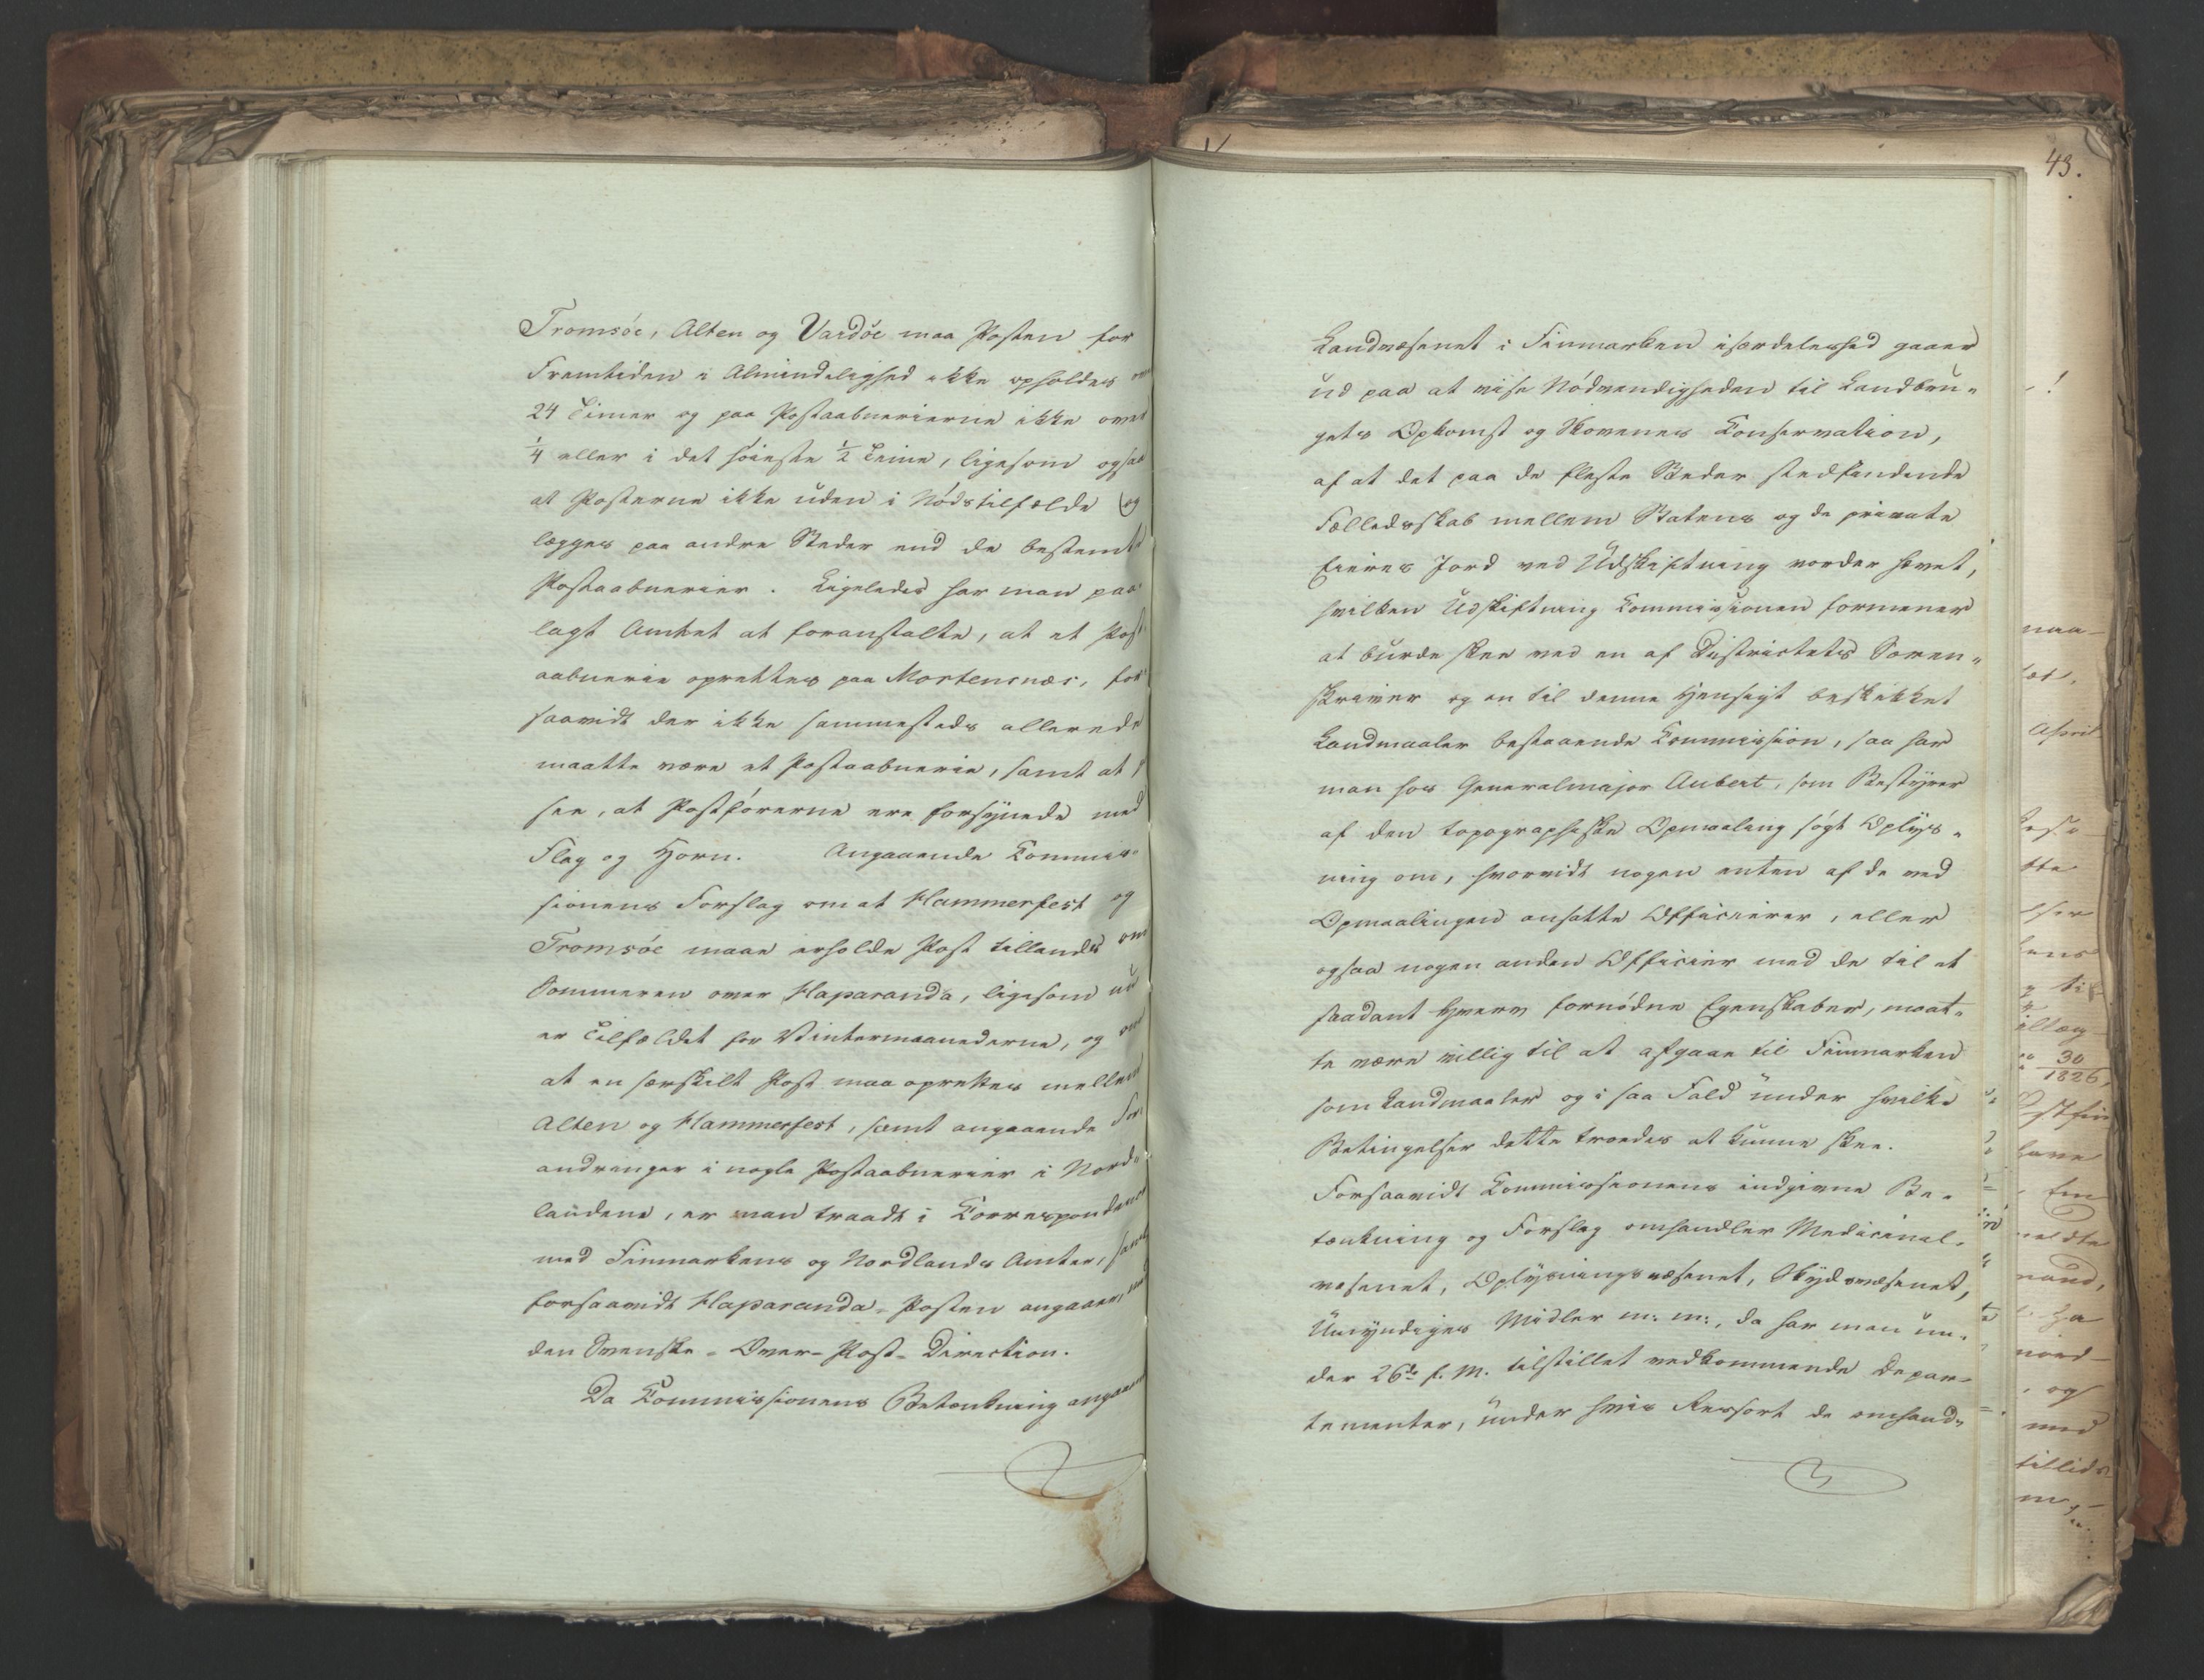 Tromsöe, Alten og Vardöe maa Posten for
Fremtiden i Almindelighed ikke opholdes
24 Timer og paa Postaabnerierne ikke over
1/4 eller i det høieste 1/2 Time, ligesom ogsaa
at Posterne ikke uden i Nödstilfælde
lægges paa andre Steder end de bestemte
Postaabnerier. Ligeledes har man paa-
lagt Amtet at foranstalte, at et Post-
aabnerie oprettes paa Mortensnæs, for
saavidt der ikke sammesteds allerede
maatte være et Postaabnerie, samt at
see, at Postförerne ere forsynede med
Flag og Horn. Angaaende Commis-
sionens Forslag om at Hammerfest og
Tromsöe maae erholde Post tillands om
Sommeren over Haparanda, ligesom nu
er Tilfældet for Vintermaanederne, og om
at en særskilt Post maa oprettes mellem
Alten og Hammerfest, samt angaaende For-
andringer i nogle Postaabnerier i Nord-
landene, er man traadt i Correspondence
med Finmarkens og Nordlands Amter, samt
forsaavidt Haparanda-Posten angaaer, med
den Svenske-Over-Post-Direction.
Da Commissionens Betænkning angaaende
43.
Landvæsenet i Finmarken isærdeleshed gaaer
ud paa at vise Nödvendigheden til Landbru-
gets Opkomst og Skovenes Conservation,
af at det paa de fleste Steder stedfindende
Fælledsskab mellem Statens og de private
Eieres Jord ved Udskiftning vorder hævet,
hvilken Udskiftning Commissionen formener
at burde skee ved en af Districtets Soren-
skriver og en til denne Hensigt beskikket
Landmaaler bestaaende Commission, saa har
man hos Generalmajor Aubert, som Bestyrer
af den topographiske Opmaaling sögt Oplys-
ning om, hvorvidt nogen enten af de ved
Opmaalingen ansatte Officierer, eller
ogsaa nogen anden Officier med de til et
saadant Hverv fornödne Egenskaber, maat-
te være villig til at afgaae til Finmarken
som Landmaaler og i saa Fald under hvilke
Betingelser dette troedes at kunne skee.
Forsaavidt Commissionens indgivne Be-
tænkning og Forslag omhandler Medicinal-
væsenet, Oplysningsvæsenet, Skydsvæsenet,
Umyndiges Midler m: m:, da har man un-
der 26de f. M. tilstillet vedkommende Depar-
tementer, under hvis Ressort de omhand-